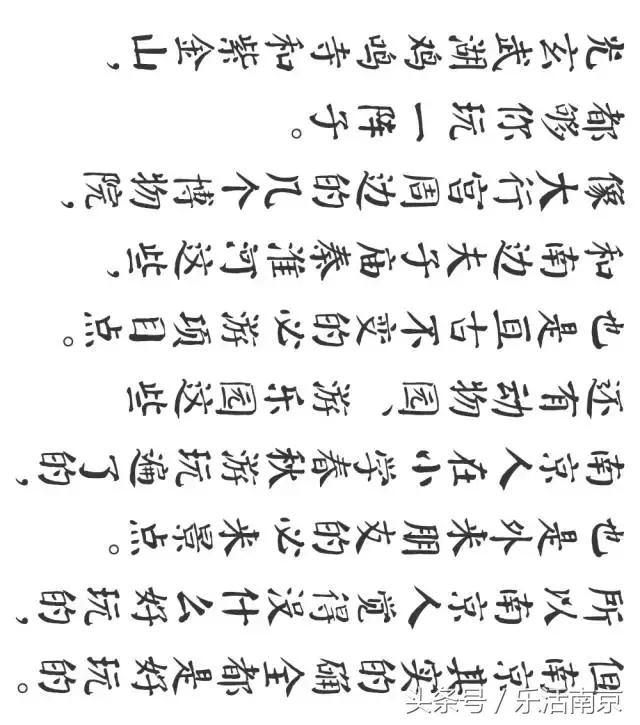 光玄武湖鸡鸣寺和紫金山，
都够你玩一阵子。
像大行宫周边的几个博物院，
和南边夫子庙秦淮河这些，
也是亘古不变的必游项目点。
还有动物园、游乐园这些
南京人在小学春秋游玩遍了的，
也是外来朋友的必来景点。
所以南京人觉得没什么好玩的，
但南京其实的确全都是好玩的。
头条号 / 乐活南京